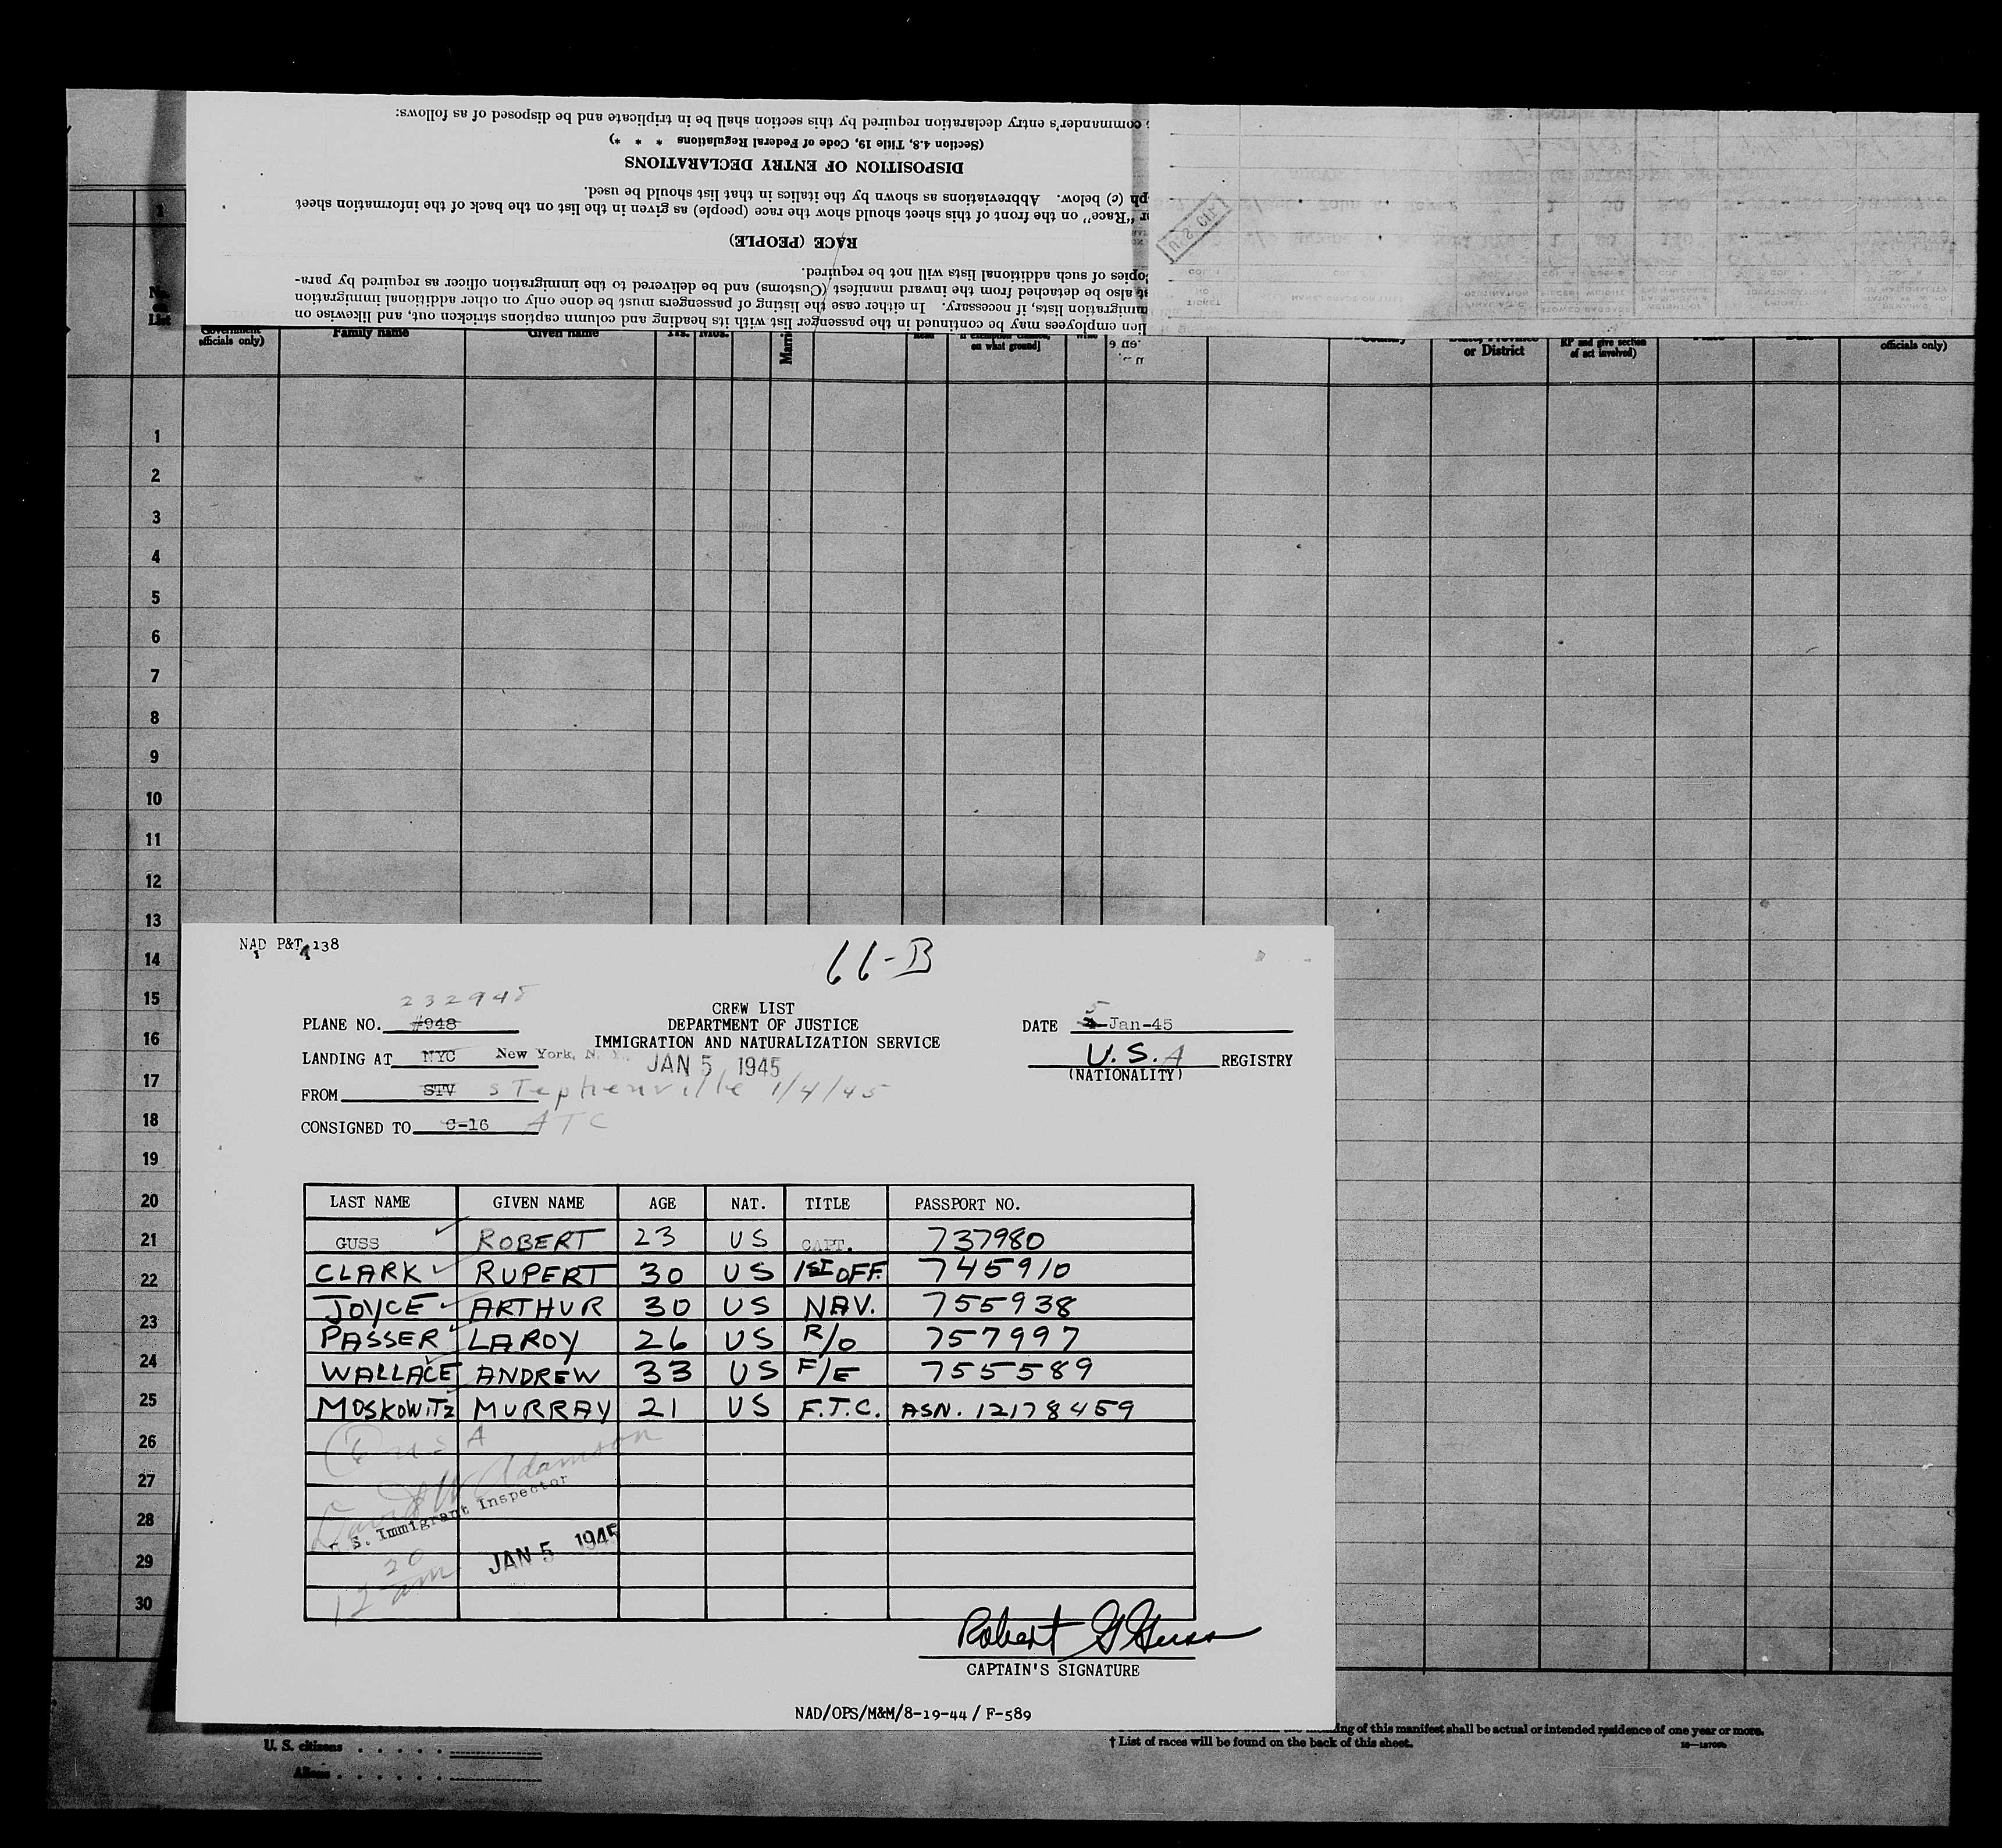 commander's entry declaration required by this section shall be in triplicate and be disposed of as follows:
(Section 4.8, Title 19, Code of Federal Regulations * * *)
DISPOSITION OF ENTRY DECLARATIONS
ph (c) below. Abbreviations as shown by the italics in that list should be used.
r "Race" on the front of this sheet should show the race (people) as given in the list on the back of the information sheet
RACE (PEOPLE)
opies of such additional lists will not be required.
t also be detached from the inward manifest (Customs) and be delivered to the immigration officer as required by para-
migration lists, if necessary. In either case the listing of passengers must be done only on other additional immigration
lien employees may be continued in the passenger list with its heading and column captions stricken out, and likewise on
List
officials only)
Family name
Given name
Yrs.
Mos.
on what ground]
or District
RP and give section
of act involved)
officials only)
1
2
3
4
5
6
7
8
9
10
11
12
13
14
15
16
17
18
19
20
21
22
23
24
25
26
27
28
29
30
NAD P&T 138
66-B
232948
PLANE NO. #948
CREW LIST
DEPARTMENT OF JUSTICE
IMMIGRATION AND NATURALIZATION SERVICE
DATE 5 Jan-45
LANDING AT NYC New York, N. Y.
JAN 5 1945
U.S.A REGISTRY
(NATIONALITY)
FROM STV Stephenville 1/4/45
CONSIGNED TO C-16 ATC
LAST NAME GIVEN NAME AGE NAT. TITLE PASSPORT NO.
GUSS ROBERT 23 US CAPT. 737980
CLARK RUPERT 30 US 1ST OFF. 745910
JOYCE ARTHUR 30 US NAV. 755938
PASSER LAROY 26 US R/O 757997
WALLACE ANDREW 33 US F/E 755589
MOSKOWITZ MURRAY 21 US F.T.C. ASN. 12178459
6 USA
David W Adamson
U. S. Immigrant Inspector
JAN 5 1945
12 20 am
Robert G Guss
CAPTAIN'S SIGNATURE
NAD/OPS/M&M/8-19-44/ F-589
U. S. citizens
Aliens
ing of this manifest shall be actual or intended residence of one year or more.
† List of races will be found on the back of this sheet.